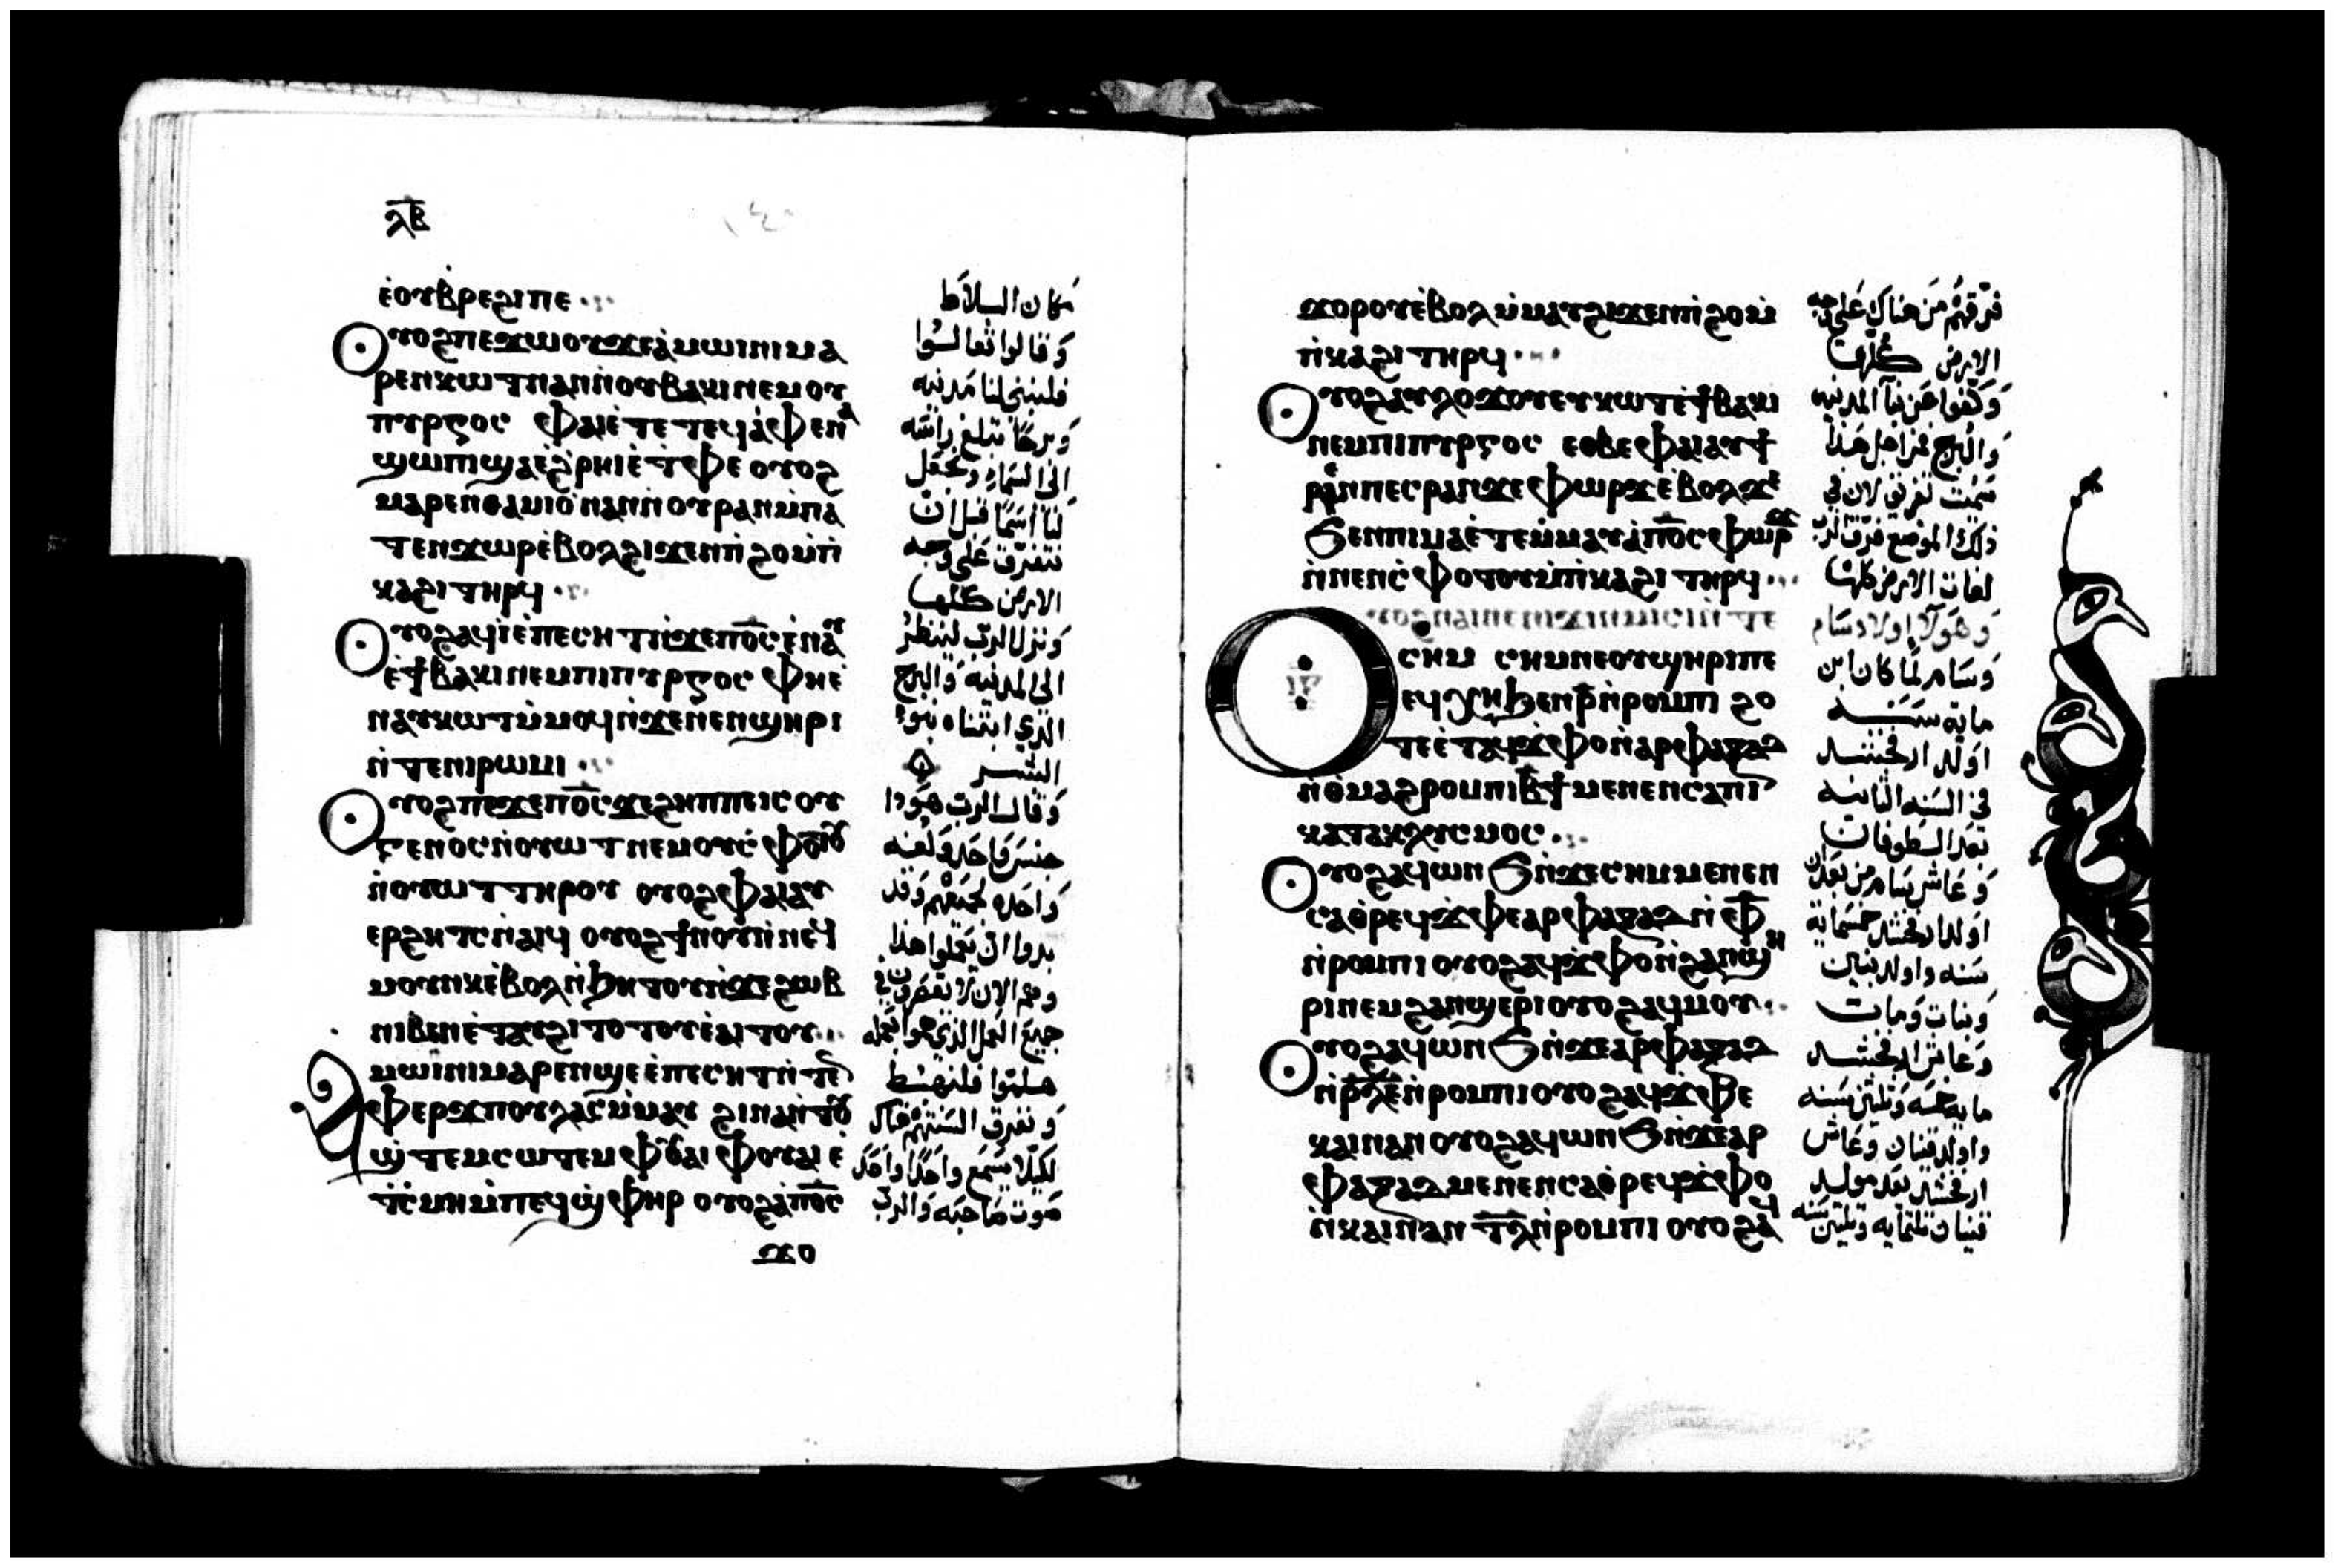 ⲗⲃ
ⲉ̀ⲟⲩⲃ̀ⲣⲉϩⲓ ⲡⲉ
ⲟⲩⲟϩ ⲡⲉϫⲱⲟⲩ ϫⲉ ⲁ̀ⲙⲱⲓⲛⲓ ⲙⲁ
ⲣⲉⲛⲕⲱⲧ ⲛⲁⲛ ⲛ̀ⲟⲩⲃⲁⲕⲓ ⲛⲉⲙ ⲟⲩ
ⲡⲩⲣⲅⲟⲥ ⲫⲁⲓ ⲉ̀ⲧⲉ ⲧⲉϥⲁ̀ⲫⲉ ⲛⲁ
ϣⲱⲡⲓ ϣⲁ ⲉ̀ϩ̀ⲣⲏⲓ ⲉ̀ⲧ̀ⲫⲉ ⲟⲩⲟϩ
ⲙⲁⲣⲉⲛⲑⲁⲙⲓⲟ̀ ⲛⲁⲛ ⲛ̀ⲟⲩⲣⲁⲛ ⲙ̀ⲡⲁ
ⲧⲉⲛϫⲱⲣ ⲉ̀ⲃⲟⲗ ϩⲓϫⲉⲛ ⲡ̀ϩⲟ ⲙ̀ⲡ̀
ⲕⲁϩⲓ ⲧⲏⲣϥ
ⲟⲩⲟϩ ⲁϥⲓ̀ ⲉ̀ⲡⲉⲥⲏⲧ ⲛ̀ϫⲉ ⲡⲟ̅ⲥ̅ ⲉ̀ⲛⲁⲩ
ⲉ̀ϯⲃⲁⲕⲓ ⲛⲉⲙ ⲡⲓⲡⲩⲣⲅⲟⲥ ⲫⲏ ⲉ̀
ⲛⲁⲩⲕⲱⲧ ⲙ̀ⲙⲟϥ ⲛ̀ϫⲉ ⲛⲉⲛϣⲏⲣⲓ
ⲛ̀ⲧⲉ ⲛⲓⲣⲱⲙⲓ
ⲟⲩⲟϩ ⲡⲉϫⲉ ⲡⲟ̅ⲥ̅ ϫⲉ ϩⲏⲡⲡⲉ ⲓⲥ ⲟⲩ
ⲅⲉⲛⲟⲥ ⲛ̀ⲟⲩⲱⲧ ⲛⲉⲙ ⲟⲩⲥ̀ⲫⲟⲧⲟⲩ
ⲛ̀ⲟⲩⲱⲧ ⲧⲏⲣⲟⲩ ⲟⲩⲟϩ ⲫⲁⲓ ⲁⲩ
ⲉⲣϩⲏⲧⲥ ⲛ̀ⲁⲓϥ ⲟⲩⲟϩ ϯⲛⲟⲩ ⲛ̀ⲛⲉϥ
ⲙⲟⲩⲛⲕ ⲉ̀ⲃⲟⲗ ⲛ̀ϧⲏⲧⲟⲩ ⲛ̀ϫⲉ ϩⲱⲃ
ⲛⲓⲃⲉⲛ ⲉ̀ⲧⲁⲩϩⲓⲧⲟⲧⲟⲩ ⲉ̀ⲁⲓⲧⲟⲩ
ⲁⲙⲱⲓⲛⲓ ⲙⲁⲣⲉⲛϣⲉ ⲉ̀ⲡⲉⲥⲏⲧ ⲛ̀ⲧⲉⲛ
ⲫⲉⲣϫ ⲡⲟⲩⲗⲁⲥ ⲙ̀ⲙⲁⲩ ϩⲓⲛⲁ ⲛ̀ⲧⲟⲩ
ϣ̀ⲧⲉⲙⲥⲱⲧⲉⲙ ⲫⲟⲩⲁⲓ ⲫⲟⲩⲁⲓ ⲉ̀
ⲧ̀ⲥⲙⲏ ⲙ̀ⲡⲉϥϣ̀ⲫⲏⲣ ⲟⲩⲟϩ ⲁ̀ⲡⲟ̅ⲥ̅
ϫⲟ
مكان السلاط
وقالوا تعالوا
فلنبنى لنا مدنيه
وبرجا تبلغ راسه
الى السماء ونجعل
لنا اسما قبل ان
نتفرق على وجه
الارض كلها
ونزل الرب لينظر
الى المدنيه والبرج
الذي ابتناه بنوا
البشر
وقال الرب هوذا
جنس واحد ولغه
واحده لجميعهم وقد
بدوا ان يعملوا هذا
هلموا فلنهبط
ونفرق السنتهم
لكيلا يسمع واحدا واحد
صوت صاحبه والرب
ϫⲟⲣⲟⲩ ⲉ̀ⲃⲟⲗ ⲙ̀ⲙⲁⲩ ϩⲓϫⲉⲛ ⲡ̀ϩⲟ ⲙ̀
ⲡ̀ⲕⲁϩⲓ ⲧⲏⲣϥ
ⲟⲩⲟϩ ⲁⲩⲗⲟϫⲟⲩ ⲉⲩⲕⲱⲧ ⲉ̀ϯⲃⲁⲕⲓ
ⲛⲉⲙ ⲡⲓⲡⲩⲣⲅⲟⲥ ⲉⲑⲃⲉ ⲫⲁⲓ ⲁⲩϯ
ⲣⲉⲛ ⲡⲉⲥⲣⲁⲛ ϫⲉ ⲫⲱⲣϫ ⲉ̀ⲃⲟⲗ ϫⲉ
ϧⲉⲛ ⲡⲓⲙⲁ ⲉ̀ⲧⲉⲙ̀ⲙⲁⲩ ⲁ̀ⲡⲟ̅ⲥ̅ ⲫⲱⲣϫ
ⲛ̀ⲛⲉⲛⲥ̀ⲫⲟⲧⲟⲩ ⲙ̀ⲡ̀ⲕⲁϩⲓ ⲧⲏⲣϥ
ⲟⲩⲟϩ ⲛⲁⲓ ⲛⲉ ⲛⲓϫⲓⲛⲙⲓⲥⲓ ⲛ̀ⲧⲉ
ⲥⲏⲙ ⲥⲏⲙ ⲛⲉ ⲟⲩϣⲏⲣⲓ ⲡⲉ
ⲉϥⲭⲏ ϧⲉⲛ ⲣ̅ ⲛ̀ⲣⲟⲙⲡⲓ ϩⲟ
ⲧⲉ ⲉ̀ⲧⲁϥϫ̀ⲫⲟ ⲛ̀ⲁⲣⲫⲁⲝⲁⲇ
ⲛ̀ⲑⲙⲁϩⲣⲟⲙⲡⲓ ⲃ̅ϯ ⲙⲉⲛⲉⲛⲥⲁ ⲡⲓ
ⲕⲁⲧⲁⲕⲗⲩⲥⲙⲟⲥ
ⲟⲩⲟϩ ⲁϥⲱⲛϧ ⲛ̀ϫⲉ ⲥⲏⲙ ⲙⲉⲛⲉⲛ
ⲥⲁ ⲑ̀ⲣⲉϥϫ̀ⲫⲉ ⲁⲣⲫⲁⲝⲁⲇ ⲛ̀ ⲫ̅
ⲛ̀ⲣⲟⲙⲡⲓ ⲟⲩⲟϩ ⲁϥϫ̀ⲫⲟ ⲛ̀ϩⲁⲛϣⲏ
ⲣⲓ ⲛⲉⲙ ϩⲁⲛϣⲉⲣⲓ ⲟⲩⲟϩ ⲁϥⲙⲟⲩ
ⲟⲩⲟϩ ⲁϥⲱⲛϧ ⲛ̀ϫⲉ ⲁⲣⲫⲁⲝⲁⲇ
ⲛ̀ⲣ̅ⲗ̅ⲉ̅ ⲛ̀ⲣⲟⲙⲡⲓ ⲟⲩⲟϩ ⲁϥϫ̀ⲫⲉ
ⲕⲁⲓⲛⲁⲛ ⲟⲩⲟϩ ⲁϥⲱⲛϧ ⲛ̀ϫⲉ ⲁⲣ
ⲫⲁⲝⲁⲇ ⲙⲉⲛⲉⲛⲥⲁ ⲑ̀ⲣⲉϥϫ̀ⲫⲟ
ⲛ̀ⲕⲁⲓⲛⲁⲛ ⲧ̅ⲗ̅ ⲛ̀ⲣⲟⲙⲡⲓ ⲟⲩⲟϩ ⲁϥ
فرقهم من هناك على وجه
الارض كلها
وكفوا عن بنآ المدنيه
والبرج من اجل هذا
سميت تفريق لان في
ذلك الموضع فرق الرب
لغات الارض كلها
وهولآ اولاد سام
وسام لما كان ابن
مايه سنه
اولد ارفخشد
في السنه الثانيه
بعد الطوفان
وعاش سام من بعد ان
اولد ارفخشد خمسمايه
سنه واولد بنين
وبنات ومات
وعاش ارفخشد
مايه خمسه وثلثين سنه
واولد قينان وعاش
ارفخشد بعد مولد
قينان ثلثمايه وثلثين سنه